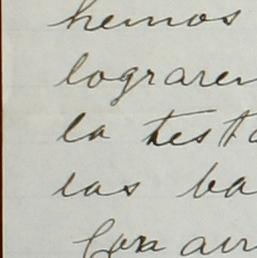 hemos
lograren
la testa
las ba
Con